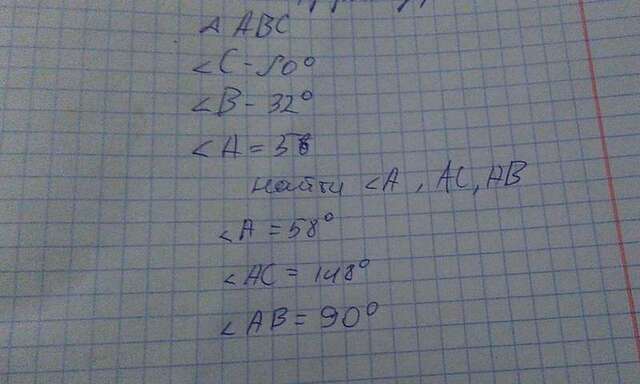 △ ABC
∠C - 90°
∠B - 32°
∠A = 36
найти ∠A, AC, AB
∠A = 58°
∠AC = 148°
∠AB = 90°